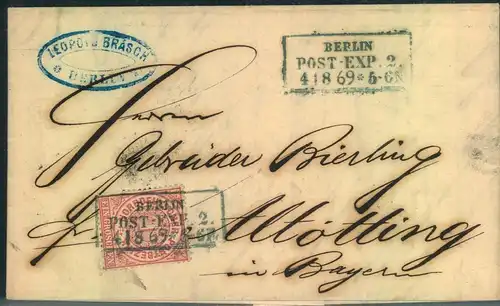 LEOPOLD BRASCH
BERLIN
BERLIN
POST-EXP. 2.
4 1 8 69 * 5-6N
Herren
Gebrüder Bierling
Altötting
in Bayern
BERLIN
POST-EXP. 2.
4 1 8 69